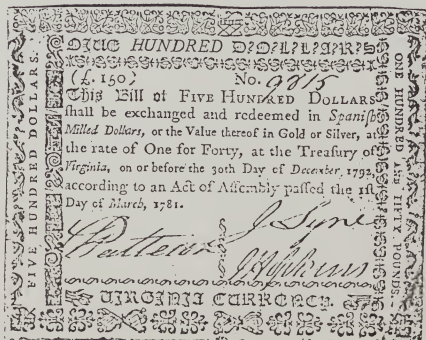 FIVE HUNDRED DOLLARS
(£. 150) No. 9815
This Bill of FIVE HUNDRED DOLLARS
shall be exchanged and redeemed in Spanish
Milled Dollars, or the Value thereof in Gold or Silver, at
the rate of One for Forty, at the Treasury of
Virginia, on or before the 30th Day of December, 1792,
according to an Act of Assembly passed the 1st
Day of March, 1781.
J Syne
J Hopkins
VIRGINIA CURRENCY.
FIVE HUNDRED DOLLARS.
ONE HUNDRED AND FIFTY POUNDS